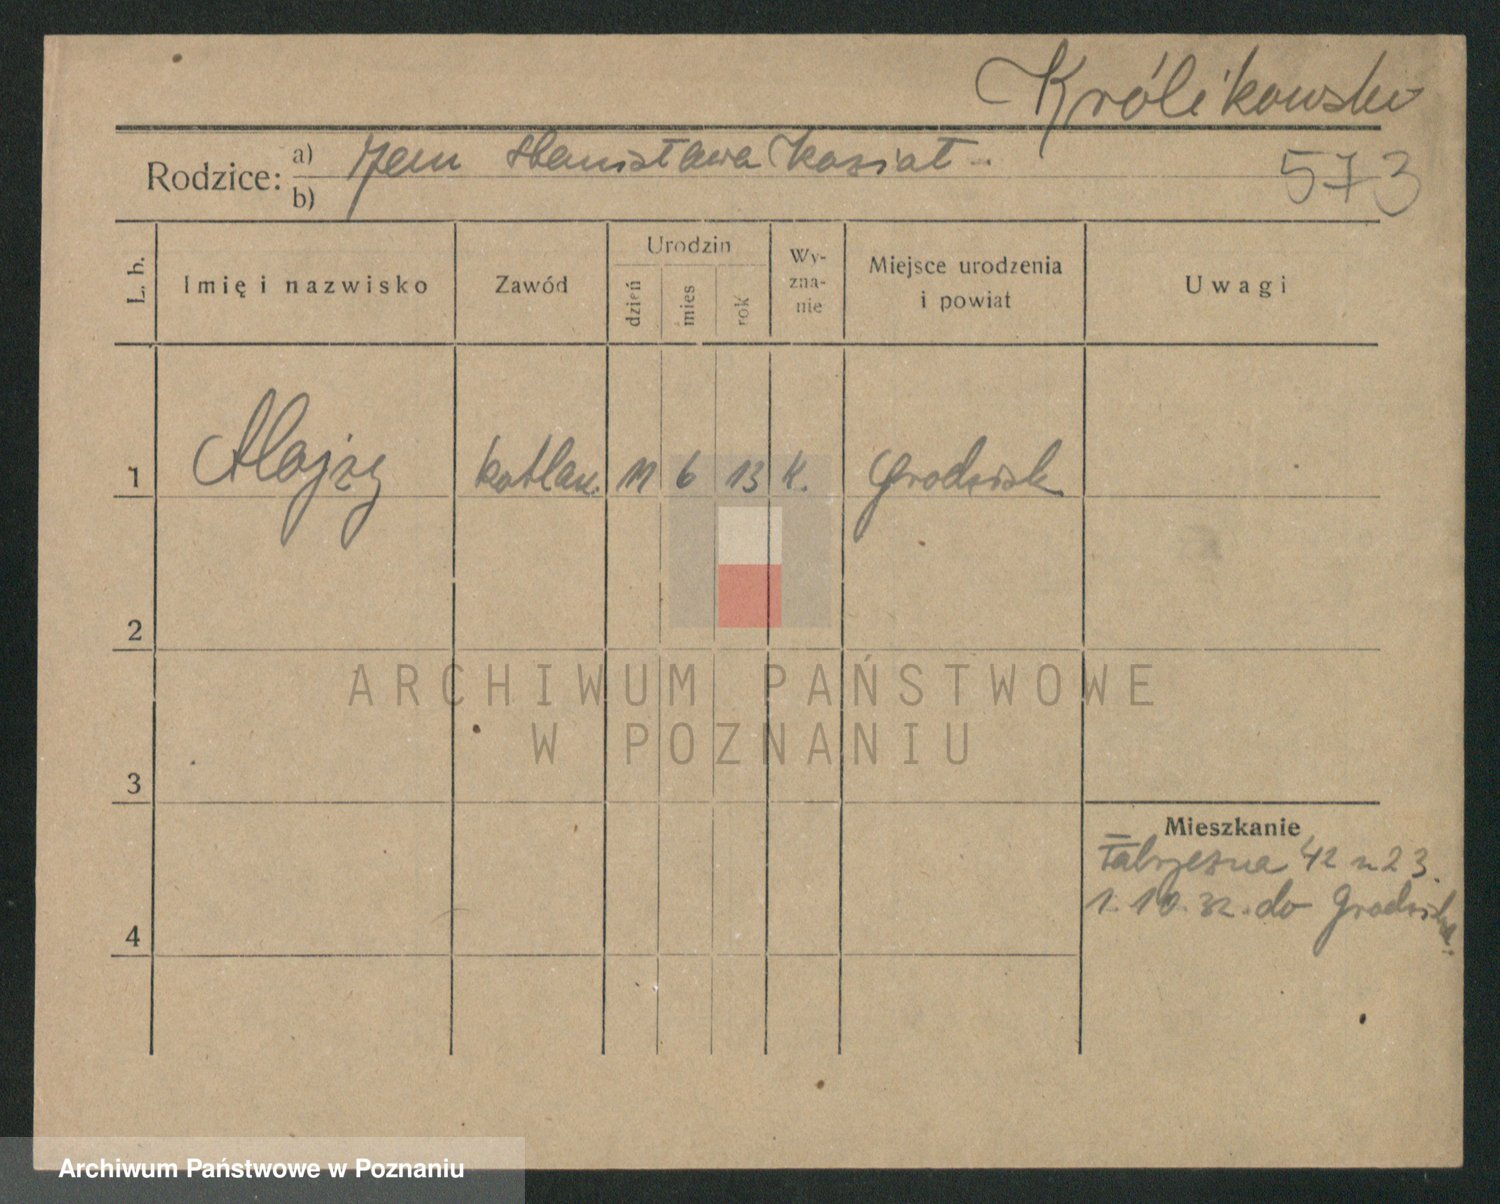 Królikowski
Rodzice: a) Jan Stanisława Kasiał
b)
573
L. b.
Imię i nazwisko
Zawód
Urodzin
dzień
mies
rok
Wy-
zna-
nie
Miejsce urodzenia
i powiat
Uwagi
1 Alojzy kotlarz. 11 6 13 k. Grodzisk
2
3
4
Mieszkanie
42 23.
1.10.32. do Grodziska.
ARCHIWUM PAŃSTWOWE
W POZNANIU
Archiwum Państwowe w Poznaniu